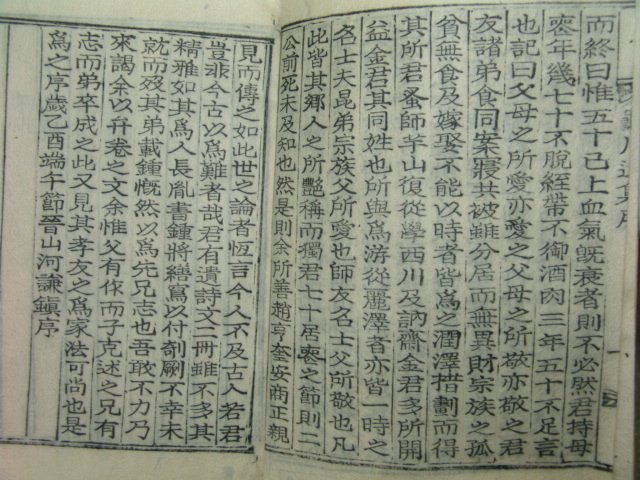 而終曰惟五十已上血氣旣衰者則不必然君持母
喪年幾七十不脫絰帶不御酒肉三年五十不足言
也記曰父母之所愛亦愛之父母之所敬亦敬之君
友諸弟食同案寢共被雖分居而無異財宗族之孤
貧無食及嫁娶不能以時者皆爲之潤澤措劃而得
其所君蚤師芋山復從學西川及訥齋金君多所開
益金君其同姓也所與爲游從麗澤者亦皆一時之
名士夫昆弟宗族父所愛也師友名士父所敬也凡
此皆其鄕人之所艶稱而獨君七十居喪之節則二
公前死未及知也然是則余所善趙亨奎安商正親
見而傳之如此世之論者恆言今人不及古人若君
豈非今古以爲難者哉君有遺詩文二冊雖不多其
精雅如其爲人長胤書鍾將繕寫以付剞劂不幸未
就而歿其弟載鍾慨然以爲先兄志也吾敢不力乃
來謁余以弁卷之文余惟父有作而子克述之兄有
志而弟卒成之此又見其孝友之爲家法可尙也是
爲之序歲乙酉端午節晉山河謙鎭序